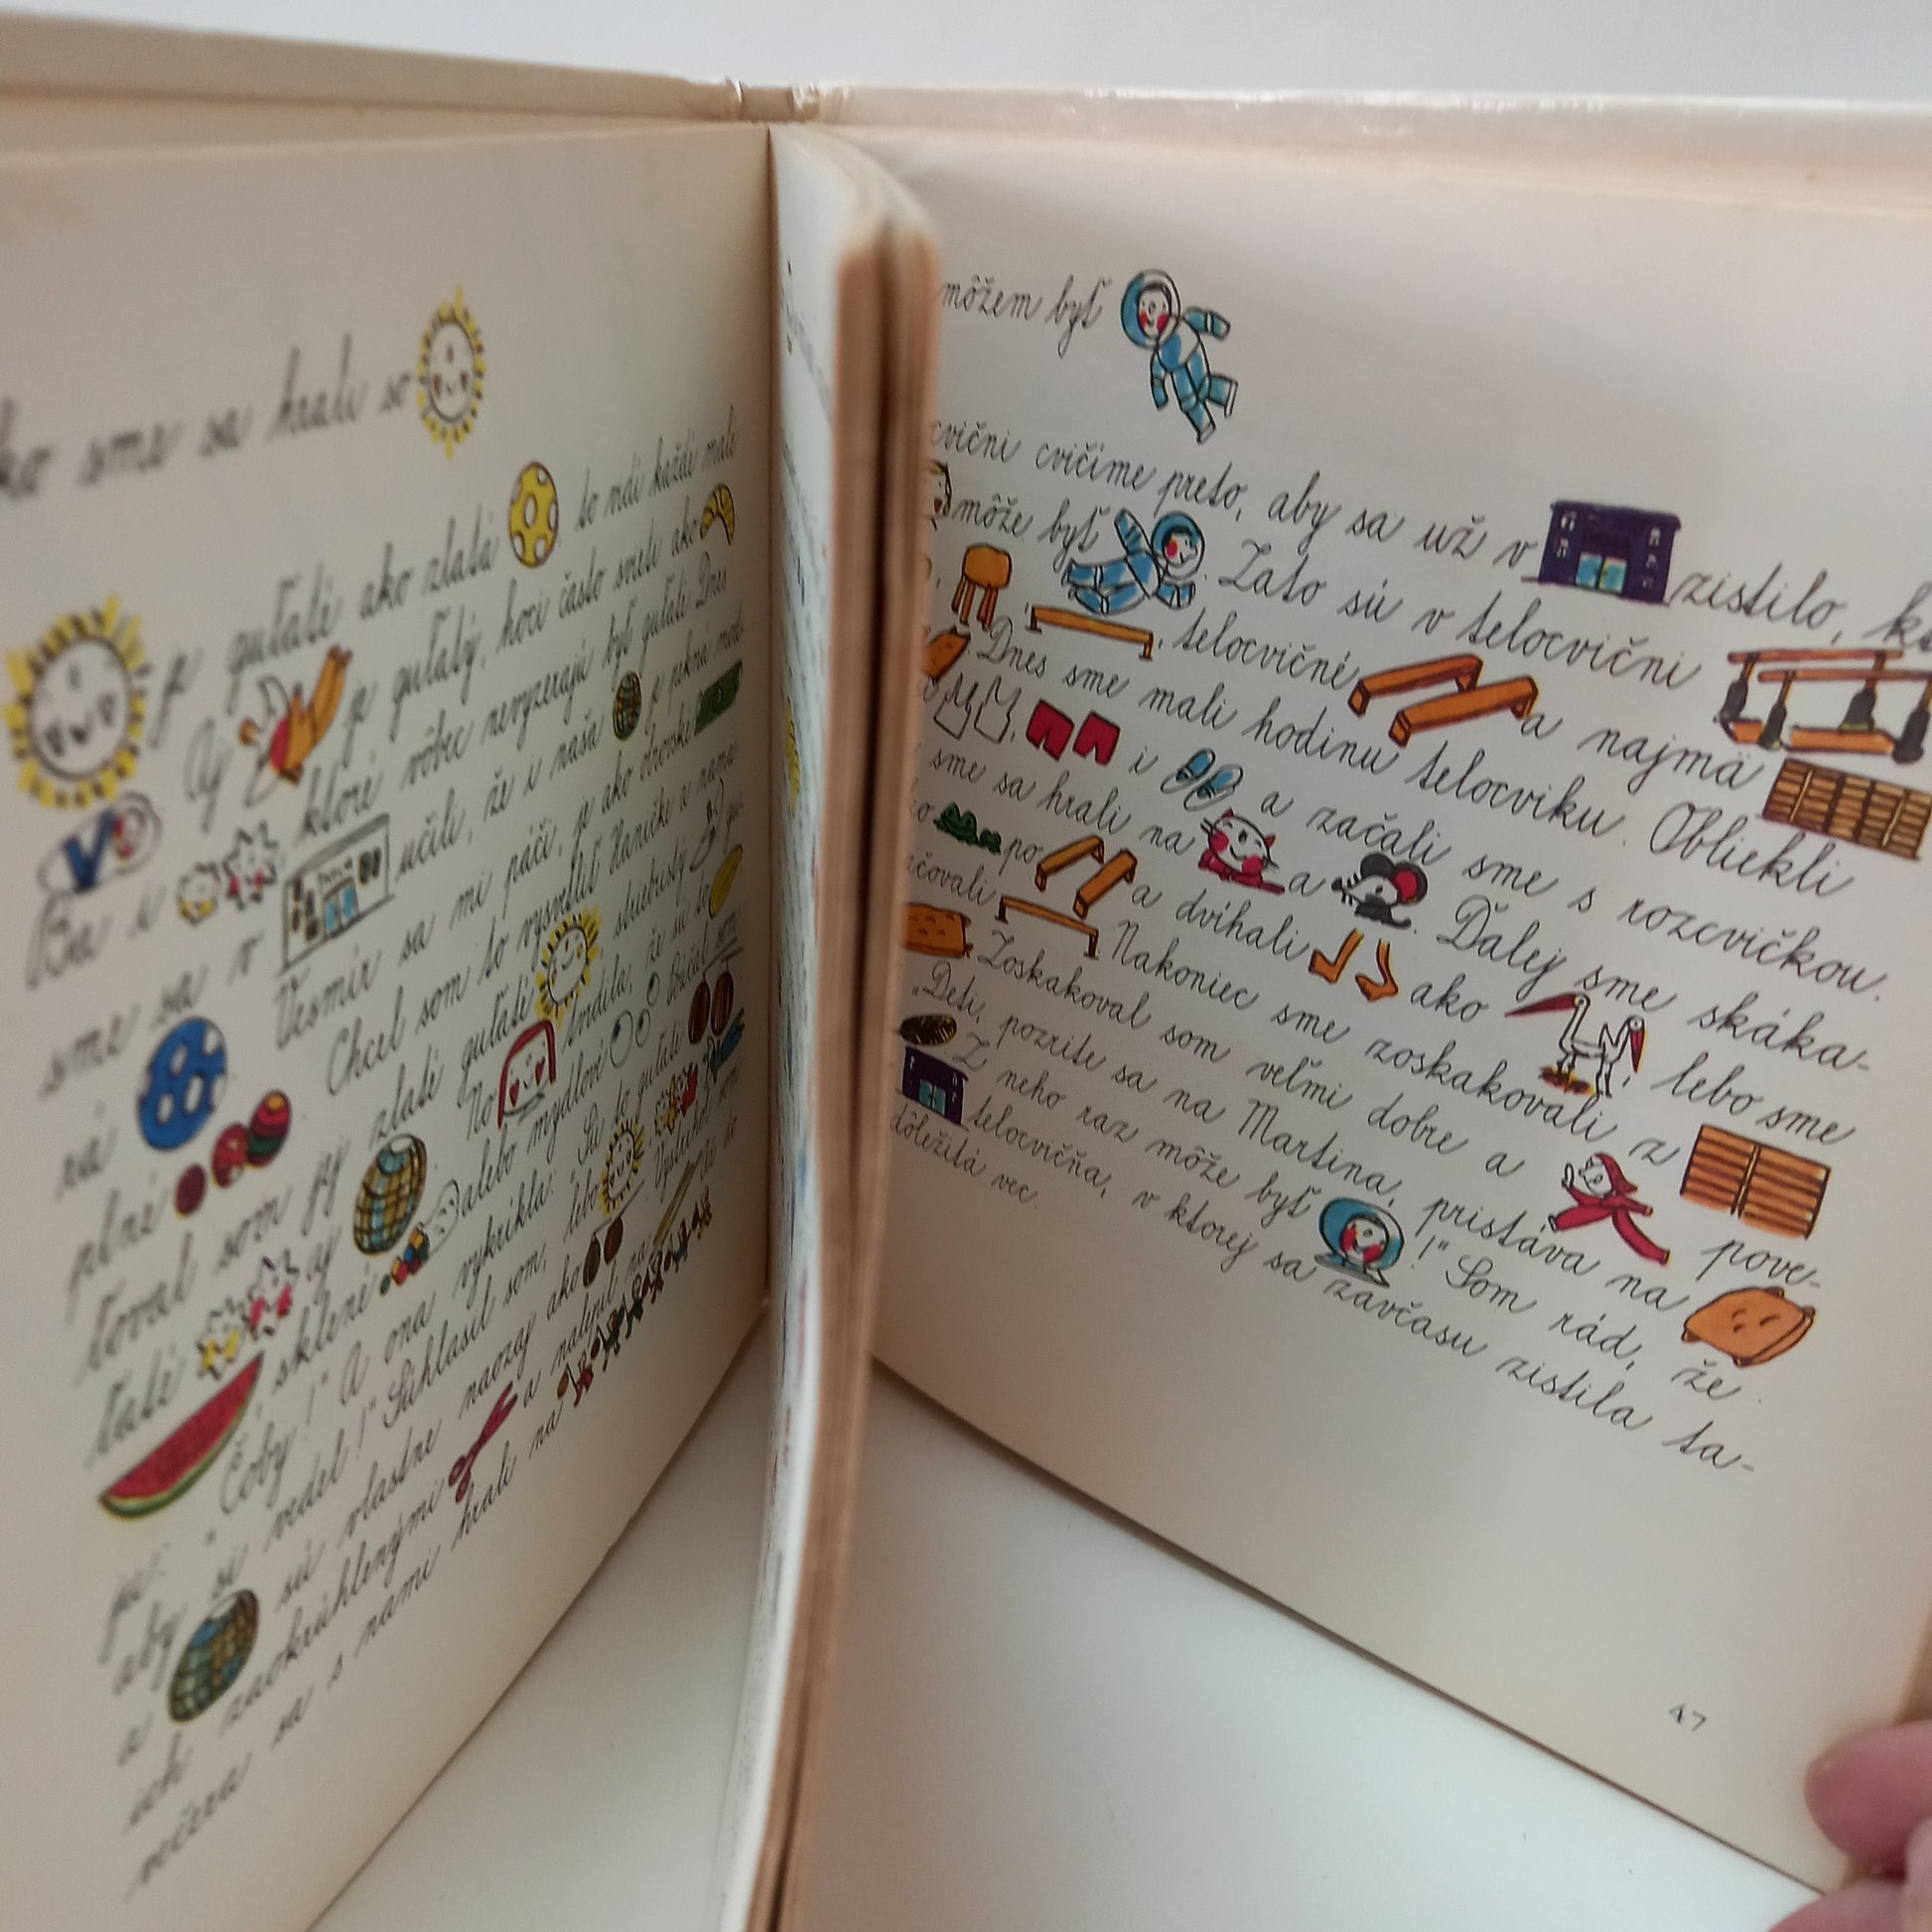 ko sme sa hrali so
je guľaté ako zlatá to vidí každé malé
Aj je guľatý, hoci často svieti ako
Ba i ktoré vôbec nevyzerajú byť guľaté. Dnes
sme sa v učili, že i naša je pekná mod-
rá Vesmír sa mi páči, je ako obrovské
plné Chcel som to vysvetliť Haničke a nama-
ľoval som jej zlaté guľaté striebristý gu-
ľaté aj No tvrdila, že sú to
sklené alebo mydlové Kričal som
ja: "Čoby!" A ona vykríkla: "Sú to guľaté
aby si vedel!" Súhlasil som, lebo
a sú vlastne naozaj ako Vystrihol som
ich zaokrúhlenými a nalepil na
večera sa s nami hrali na
môžem byť
cvični cvičíme preto, aby sa už v zistilo, k
môže byť Zato sú v telocvični
telocvičné a najmä
Dnes sme mali hodinu telocviku. Obliekli
i a začali sme s rozcvičkou.
sme sa hrali na a Ďalej sme skáka-
ko po a dvíhali ako lebo sme
čovali Nakoniec sme zoskakovali z
Zoskakoval som veľmi dobre a pove-
„Deti, pozrite sa na Martina, pristáva na
Z neho raz môže byť !" Som rád, že
telocvičňa, v ktorej sa zavčasu zistila ta-
dôležitá vec.
47